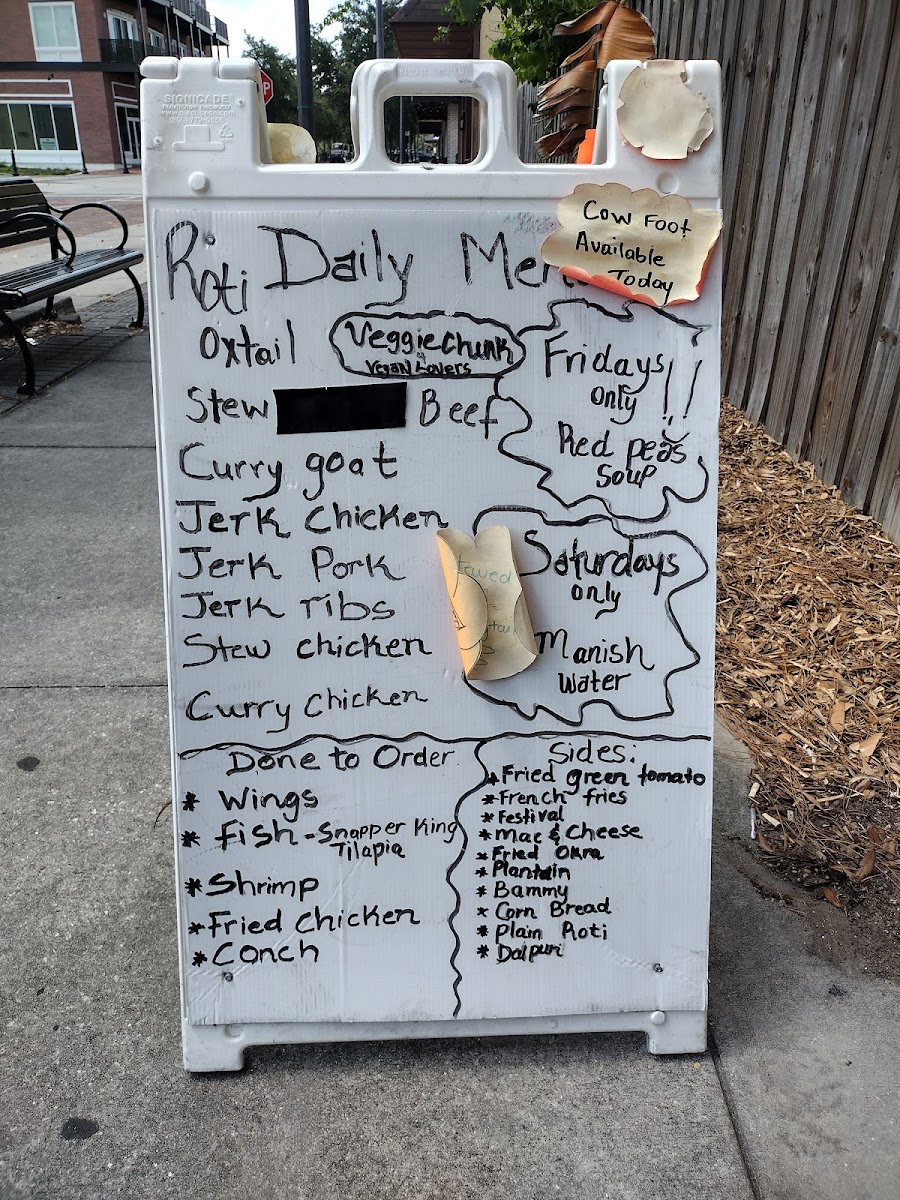 SIGNICADE
Cow Foot
Available
Today
Roti Daily
Oxtail
Veggie Chunk
Vegan Lovers
Stew Beef
Curry goat
Jerk Chicken
Jerk Pork
Jerk ribs
Stew chicken
Curry Chicken
Fridays!!
only
Red peas
Soup
Saturdays
only
Manish
Water
Done to Order
* Wings
* fish - Snapper King
Tilapia
* Shrimp
* Fried Chicken
* Conch
Sides:
* Fried green tomato
* French fries
* Festival
* Mac & Cheese
* Fried Okra
* Plantain
* Bammy
* Corn Bread
* Plain Roti
* Dalpuri